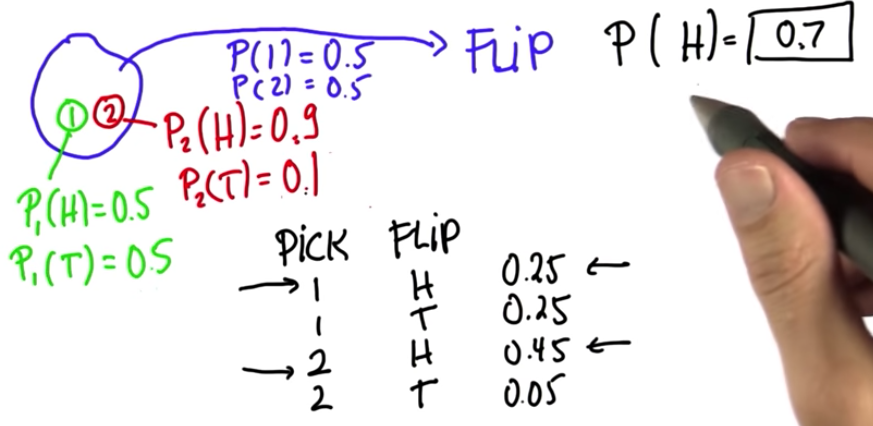 P(1) = 0.5
P(2) = 0.5
FLiP
P(H) = 0.7
1 2
P₂(H) = 0.9
P₂(T) = 0.1
P₁(H) = 0.5
P₁(T) = 0.5
PiCK FLiP
1 H 0.25
1 T 0.25
2 H 0.45
2 T 0.05